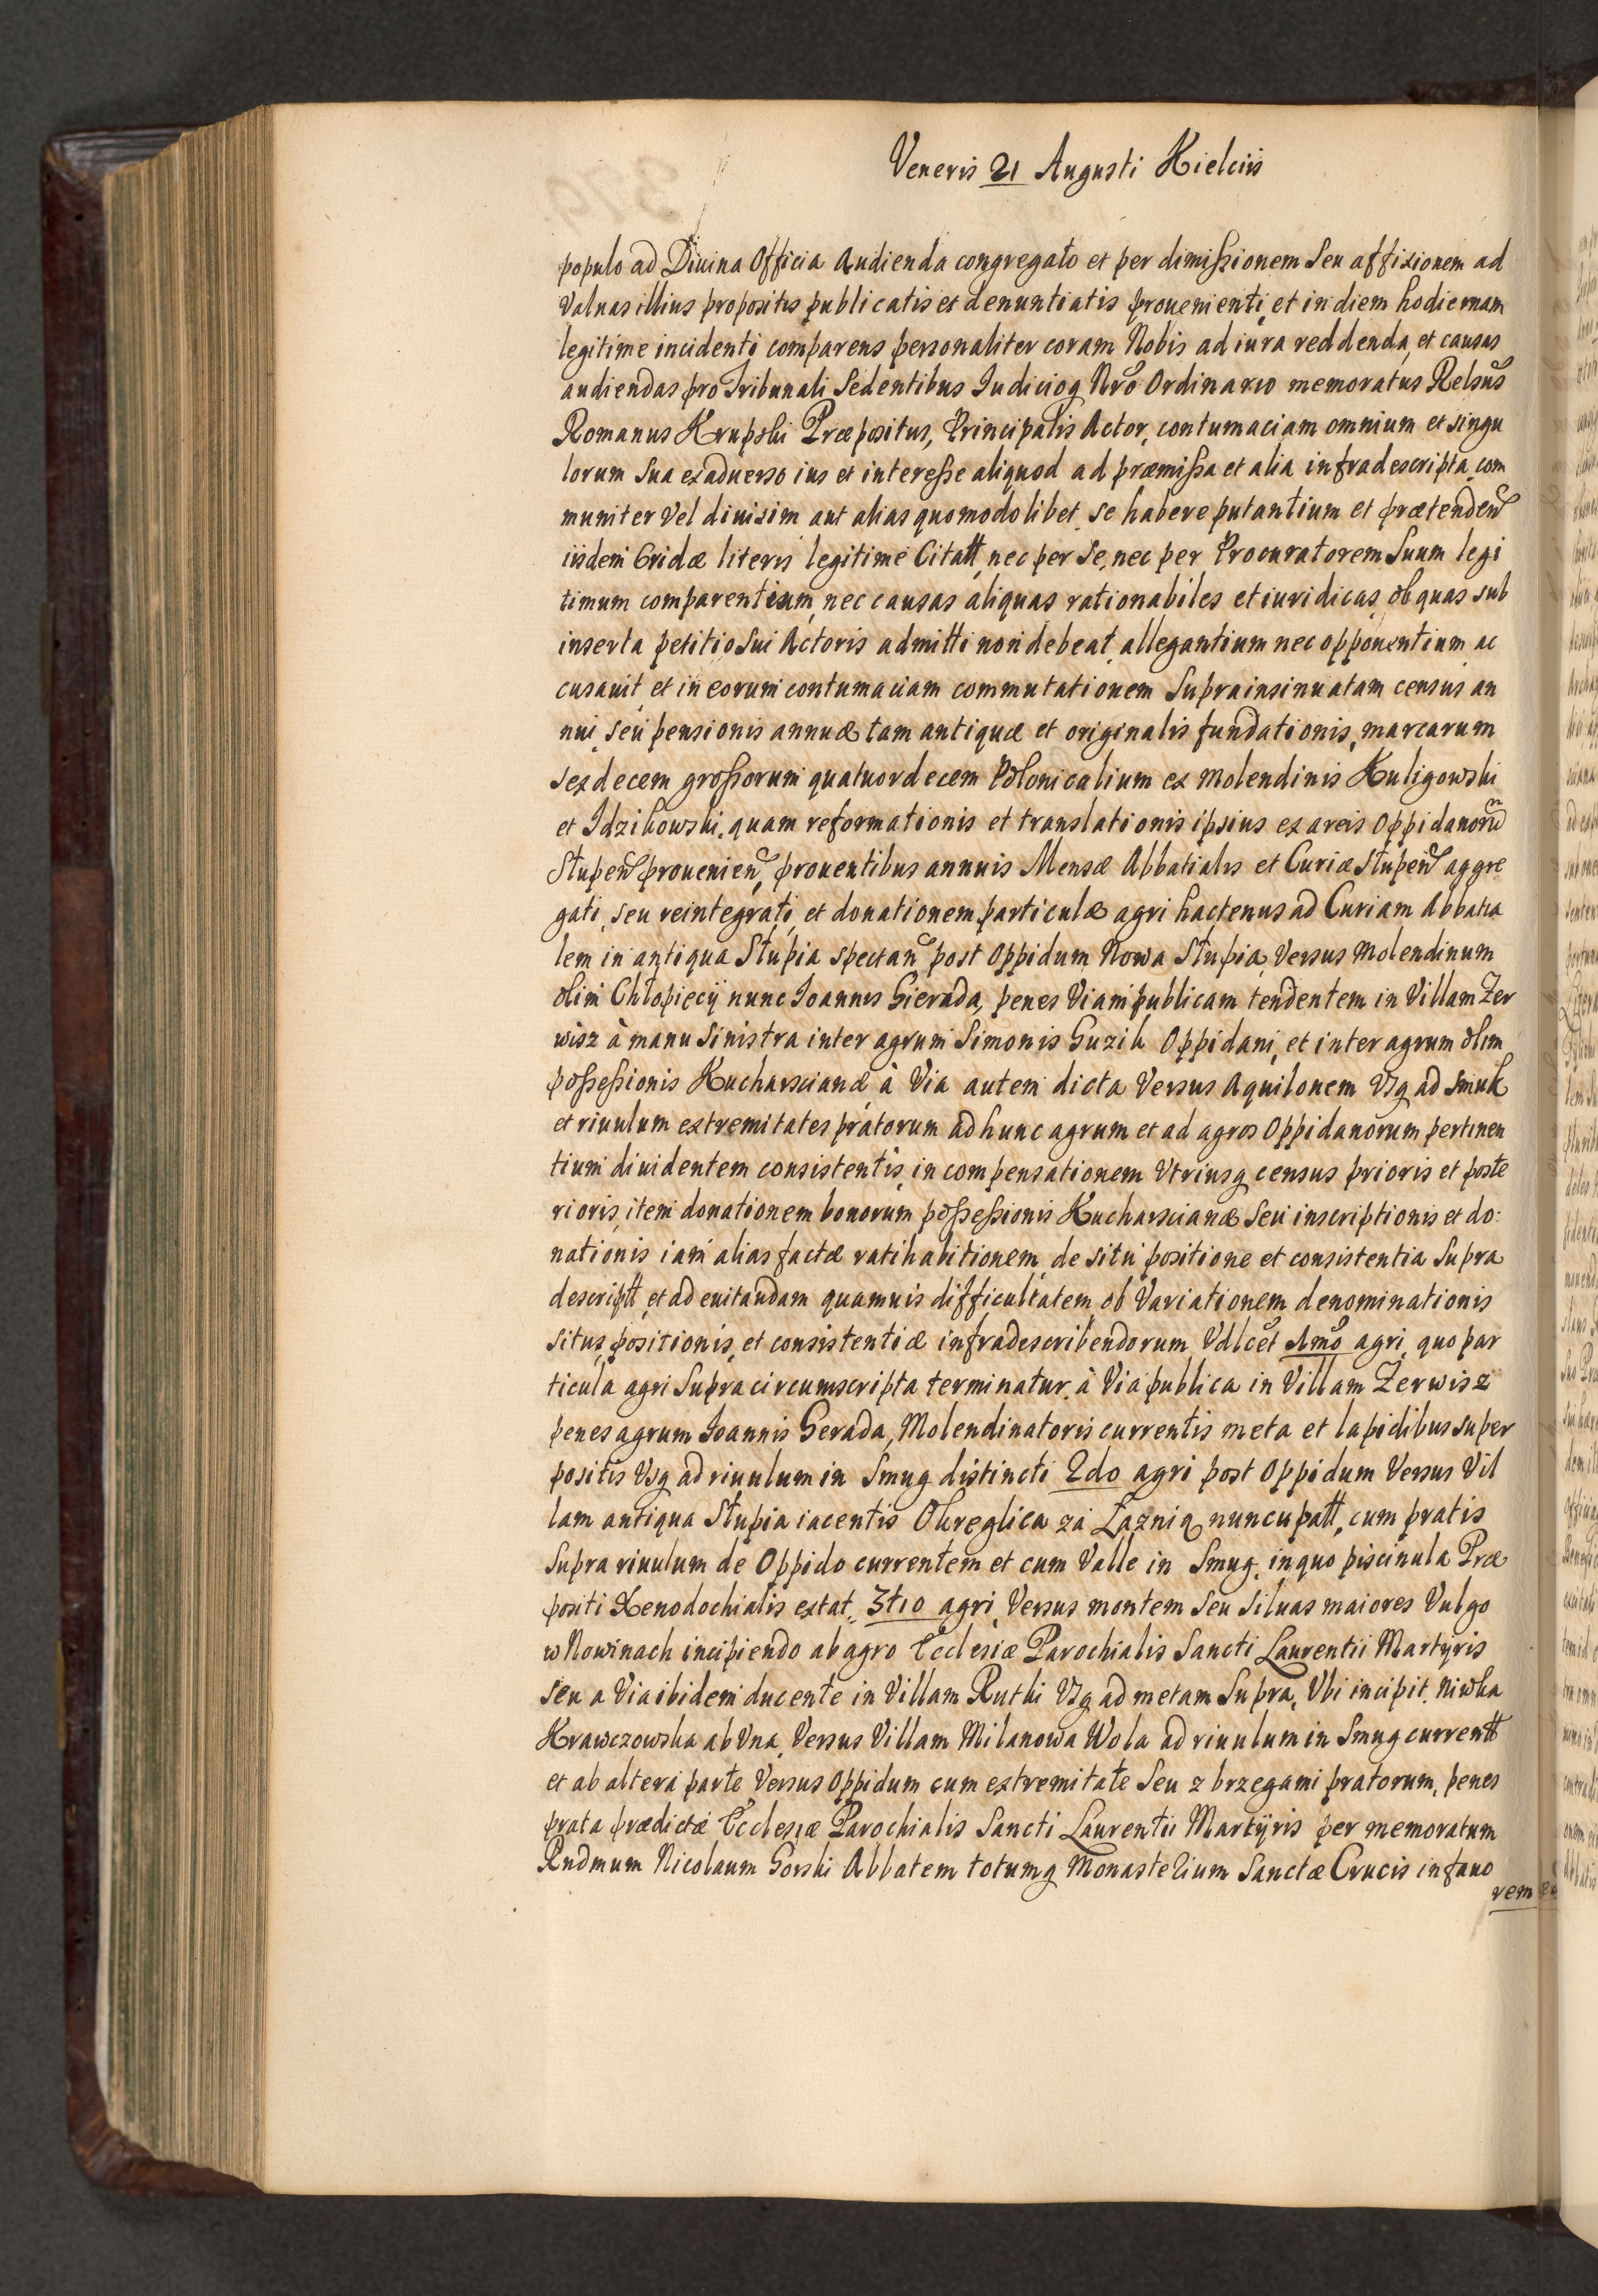 Veneris 21 Augusti Kielciis
populo ad Diuina Officia Audienda congregato et per dimissionem Seu affixionem ad
Valuas illius propositis publicatis et denuntiatis prouenienti, et in diem hodiernam
legitime incidenti comparens personaliter coram Nobis ad iura reddenda, et causas
audiendas pro Tribunali Sedentibus Iudicioq Nrõ Ordinario memoratus Relsus
Romanus Krupski Præpositus, Principalis Actor, contumaciam omnium et singu
lorum Sua ex aduerso ius et interesse aliquod ad præmissa et alia infradescripta com
muniter Vel diuisim aut alias quomodolibet se habere putantium et prætenden
iisdem Cridæ literis legitime Citatt, nec per Se, nec per Procuratorem Suum legi
timum comparentium, nec causas aliquas rationabiles et iuridicas, ob quas sub
inserta petitio Sui Actoris admitti non debeat, allegantium nec opponentium ac
cusauit, et in eorum contumaciam commutationem Suprainsinuatam census an
nui, seu pensionis annuæ tam antiquæ et originalis fundationis, marcarum
sexdecem grossorum quatuordecem Polonicalium ex Molendinis Kuligowski
et Idzikowski, quam reformationis et translationis ipsius ex areis Oppidanorũ
Stupen prouenien, prouentibus annuis Mensæ Abbatialis et Curiæ Stupen aggre
gati, seu reintegrati, et donationem particulæ agri hactenus ad Curiam Abbatia
lem in antiqua Stupia spectan post Oppidum Nowa Stupia, Versus Molendinum
olim Chłopiecij nunc Joannis Gierada, penes Viam publicam tendentem in Villam Zer
wisz à manu Sinistra inter agrum Simonis Guzik Oppidani, et inter agrum olim
possessionis Kucharscianæ à Via autem dicta Versus Aquilonem Vsq ad smuk
et riuulum extremitates pratorum ad hunc agrum et ad agros Oppidanorum pertinen
tium diuidentem consistentis, in compensationem Vtriusq census prioris et poste
rioris, item donationem bonorum possessionis Kucharscianæ Seu inscriptionis et do:
nationis iam alias factæ ratihabitionem, de situ positione et consistentia Supra
descriptt, et ad euitandam quamuis difficultatem ob Variationem denominationis
situs, positionis, et consistentiæ infradescribendorum Vdlcet 1mo agri, quo par
ticula agri Supra circumscripta terminatur, à Via publica in Villam Zerwisz
penes agrum Joannis Gerada, Molendinatoris currentis meta et lapidibus super
positis Vsq ad riuulum in Smug distincti 2do agri post Oppidum Versus Vil
lam antiqua Stupia iacentis Okreglica za Łaznią nuncupatt, cum pratis
Supra riuulum de Oppido currentem et cum Valle in Smug, in quo piscinula Præ
positi Xenodochialis extat, 3tio agri, Versus montem Seu Siluas maiores Vulgo
w Nowinach incipiendo ab agro Ecclesiæ Parochialis Sancti Laurentii Martyris
seu a Via ibidem ducente in Villam Rutki Vsq ad metam Supra, Vbi incipit Niwka
Krawczowska ab Vna, Versus Villam Milanowa Wola ad riuulum in Smug currentt
et ab altera parte Versus Oppidum cum extremitate Seu z brzegami pratorum, penes
prata prædictæ Ecclesiæ Parochialis Sancti Laurentii Martyris per memoratum
Rndmum Nicolaum Gorski Abbatem totumq Monasterium Sanctæ Crucis in fauo
rem